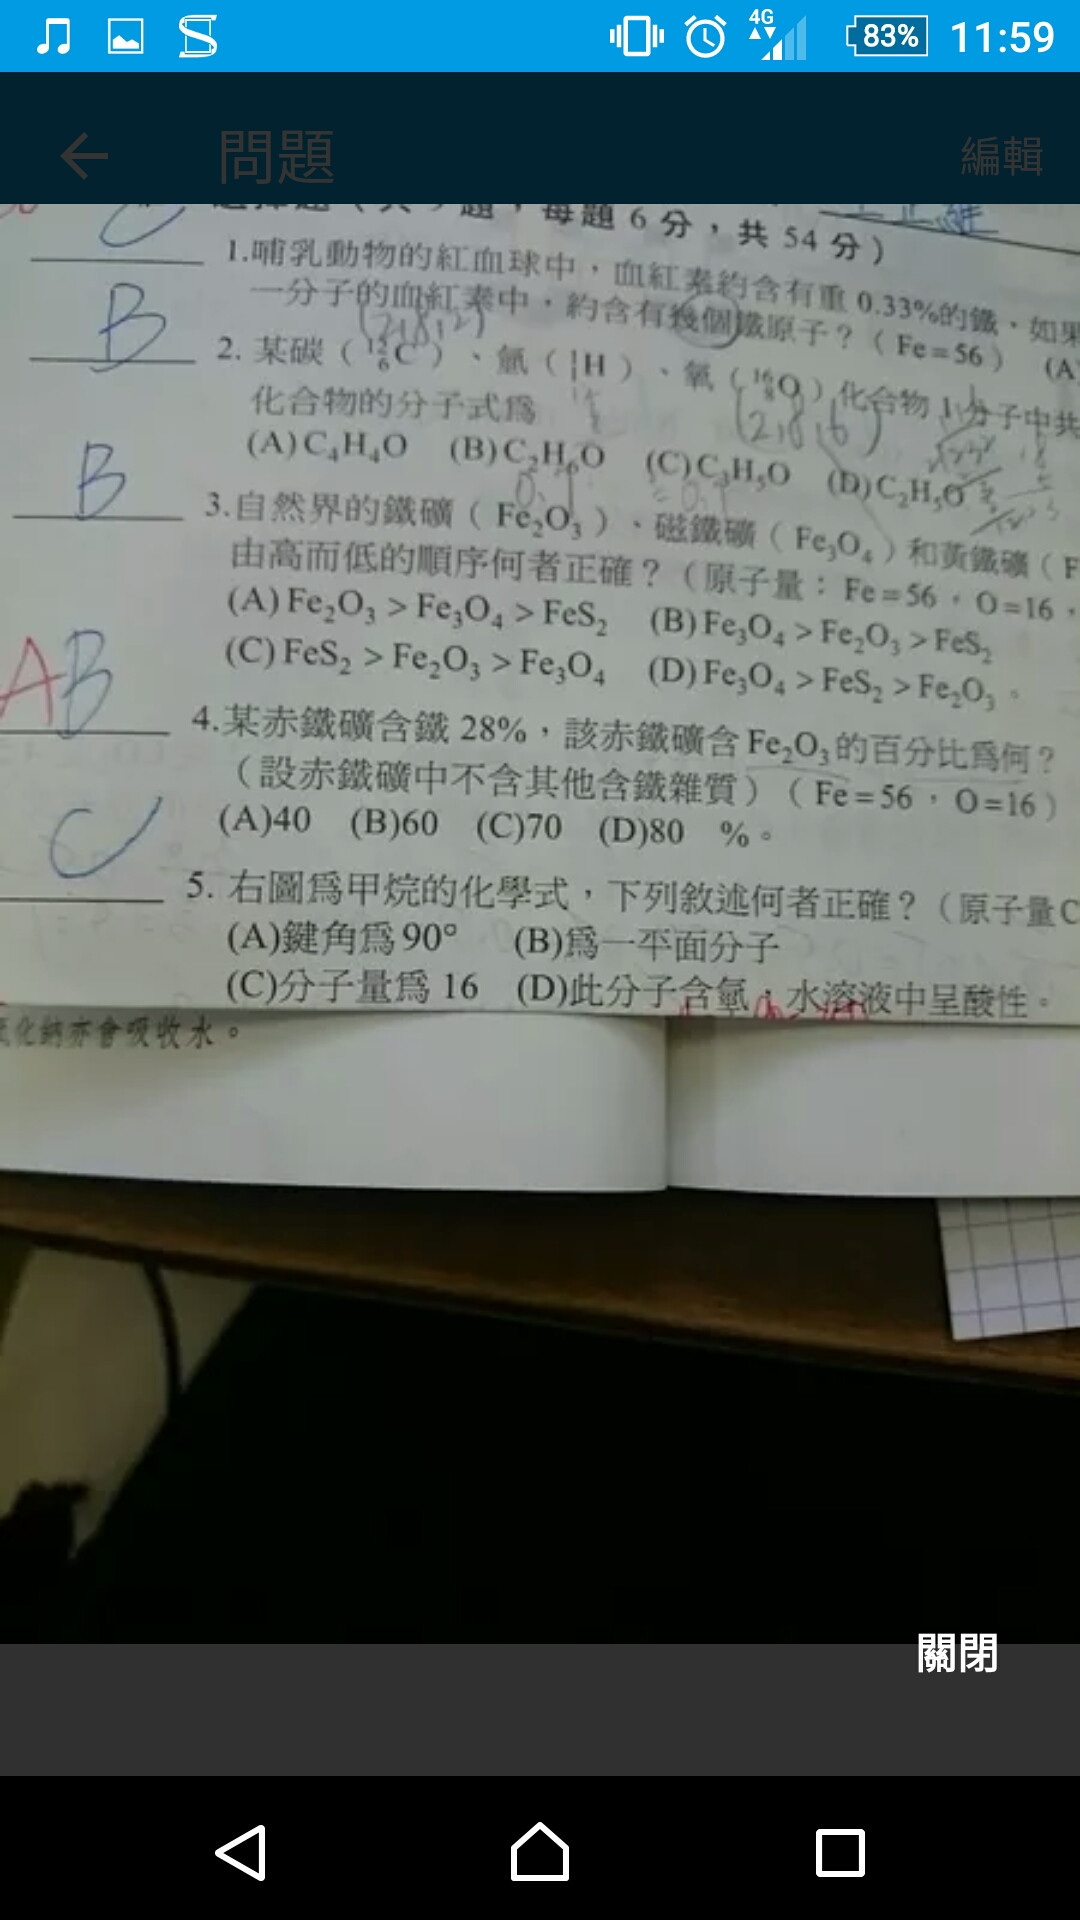 4G
83%
11:59
問題
編輯
每題 6 分，共 54 分）
1.哺乳動物的紅血球中，血紅素約含有重 0.33%的鐵，如果
一分子的血紅素中，約含有幾個鐵原子？（Fe=56） (A)
B
2. 某碳（¹²₆C）、氫（¹₁H）、氧（¹⁶₈O）化合物 1 分子中共
化合物的分子式為
(A)C₄H₄O (B)C₂H₆O (C)C₃H₅O (D)C₂H₅O
B
3.自然界的鐵礦（Fe₂O₃）、磁鐵礦（Fe₃O₄）和黃鐵礦（F
由高而低的順序何者正確？（原子量：Fe=56，O=16，
(A)Fe₂O₃＞Fe₃O₄＞FeS₂ (B)Fe₃O₄＞Fe₂O₃＞FeS₂
(C)FeS₂＞Fe₂O₃＞Fe₃O₄ (D)Fe₃O₄＞FeS₂＞Fe₂O₃。
AB
4.某赤鐵礦含鐵 28%，該赤鐵礦含 Fe₂O₃的百分比為何？
（設赤鐵礦中不含其他含鐵雜質）（Fe=56，O=16）
(A)40 (B)60 (C)70 (D)80 %。
C
5. 右圖為甲烷的化學式，下列敘述何者正確？（原子量C
(A)鍵角為 90° (B)為一平面分子
(C)分子量為 16 (D)此分子含氫，水溶液中呈酸性。
化鈉亦會吸收水。
關閉